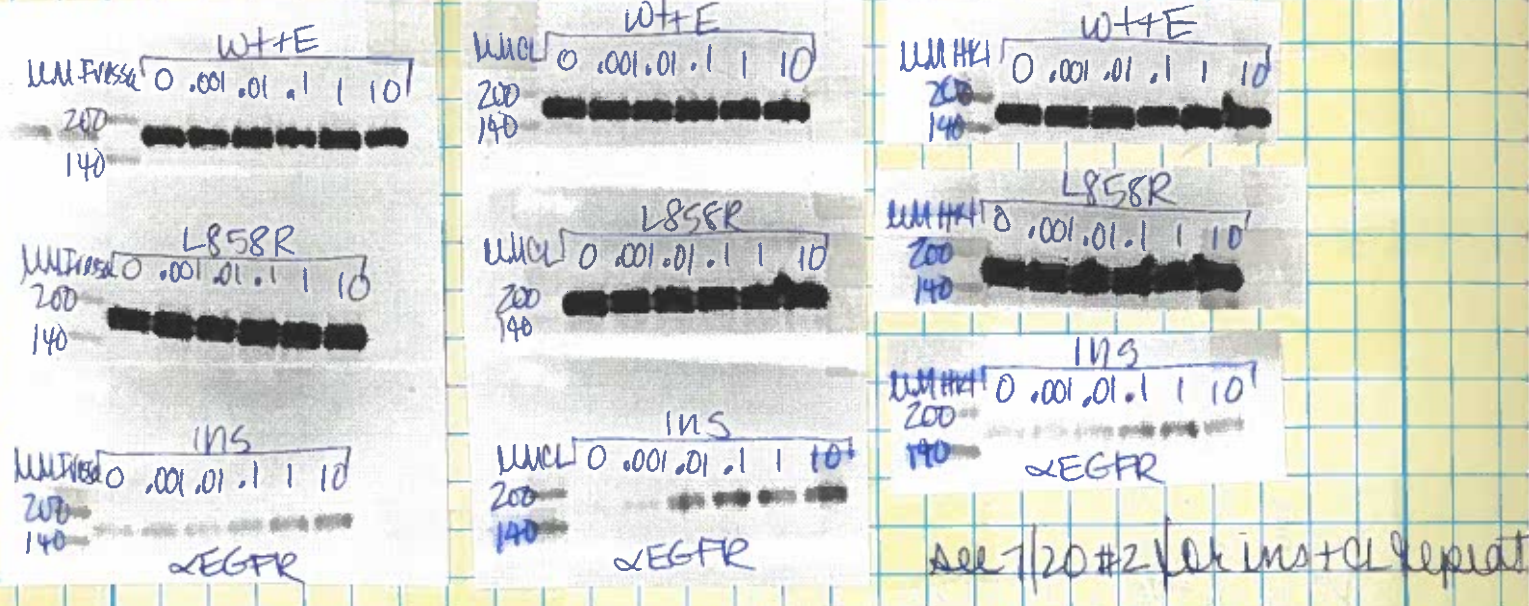 Wt+E
µM Iressa 0 .001 .01 .1 1 10
200
140
L858R
µM Iressa 0 .001 .01 .1 1 10
200
140
Ins
µM Iressa 0 .001 .01 .1 1 10
200
140
αEGFR
Wt+E
µM CL 0 .001 .01 .1 1 10
200
140
L858R
µM CL 0 .001 .01 .1 1 10
200
140
Ins
µM CL 0 .001 .01 .1 1 10
200
140
αEGFR
Wt+E
µM HKI 0 .001 .01 .1 1 10
200
140
L858R
µM HKI 0 .001 .01 .1 1 10
200
140
Ins
µM HKI 0 .001 .01 .1 1 10
200
140
αEGFR
see 7/20 #2 for ins + CL repeat